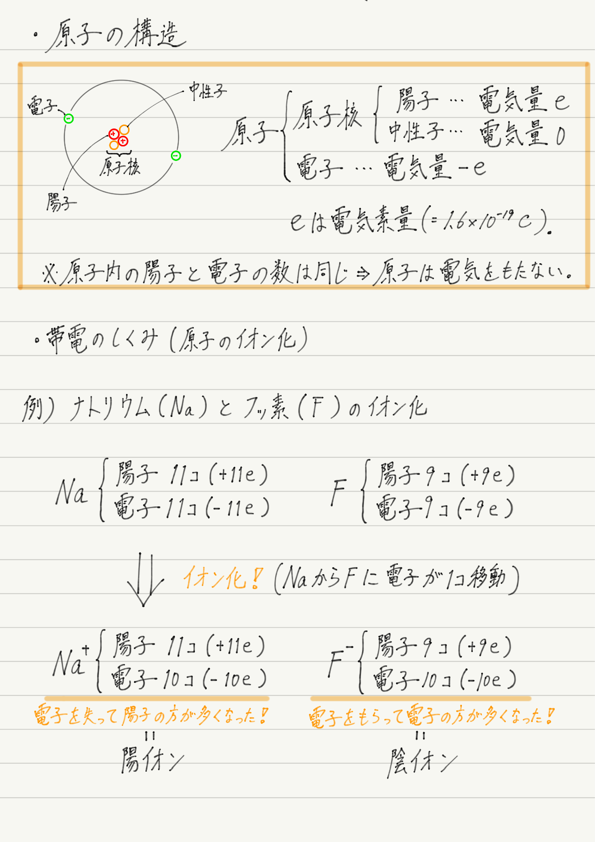 ・原子の構造
電子
中性子
原子核
陽子
原子 原子核 陽子 … 電気量 e
中性子 … 電気量 0
電子 … 電気量 -e
eは電気素量(=1.6×10⁻¹⁹C).
※原子内の陽子と電子の数は同じ⇒原子は電気をもたない。
・帯電のしくみ(原子のイオン化)
例) ナトリウム(Na)とフッ素(F)のイオン化
Na 陽子 11コ(+11e) F 陽子9コ(+9e)
電子11コ(-11e) 電子9コ(-9e)
イオン化! (NaからFに電子が1コ移動)
Na⁺ 陽子 11コ(+11e) F⁻ 陽子9コ(+9e)
電子10コ(-10e) 電子10コ(-10e)
電子を失って陽子の方が多くなった! 電子をもらって電子の方が多くなった!
= =
陽イオン 陰イオン